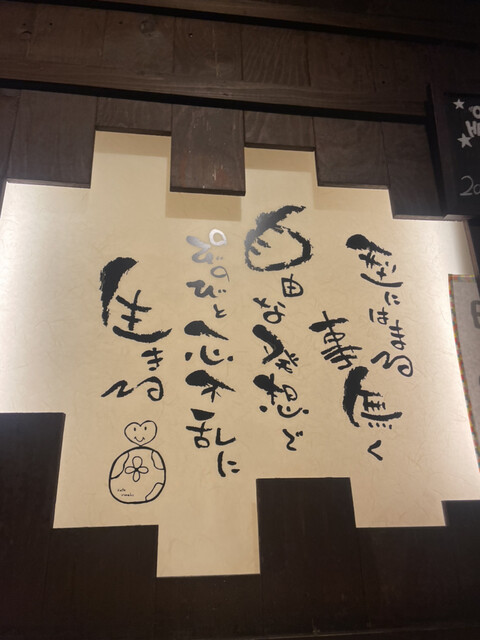 型にはまる
事無く
自由な発想で
のびのびと一心不乱に
生きる